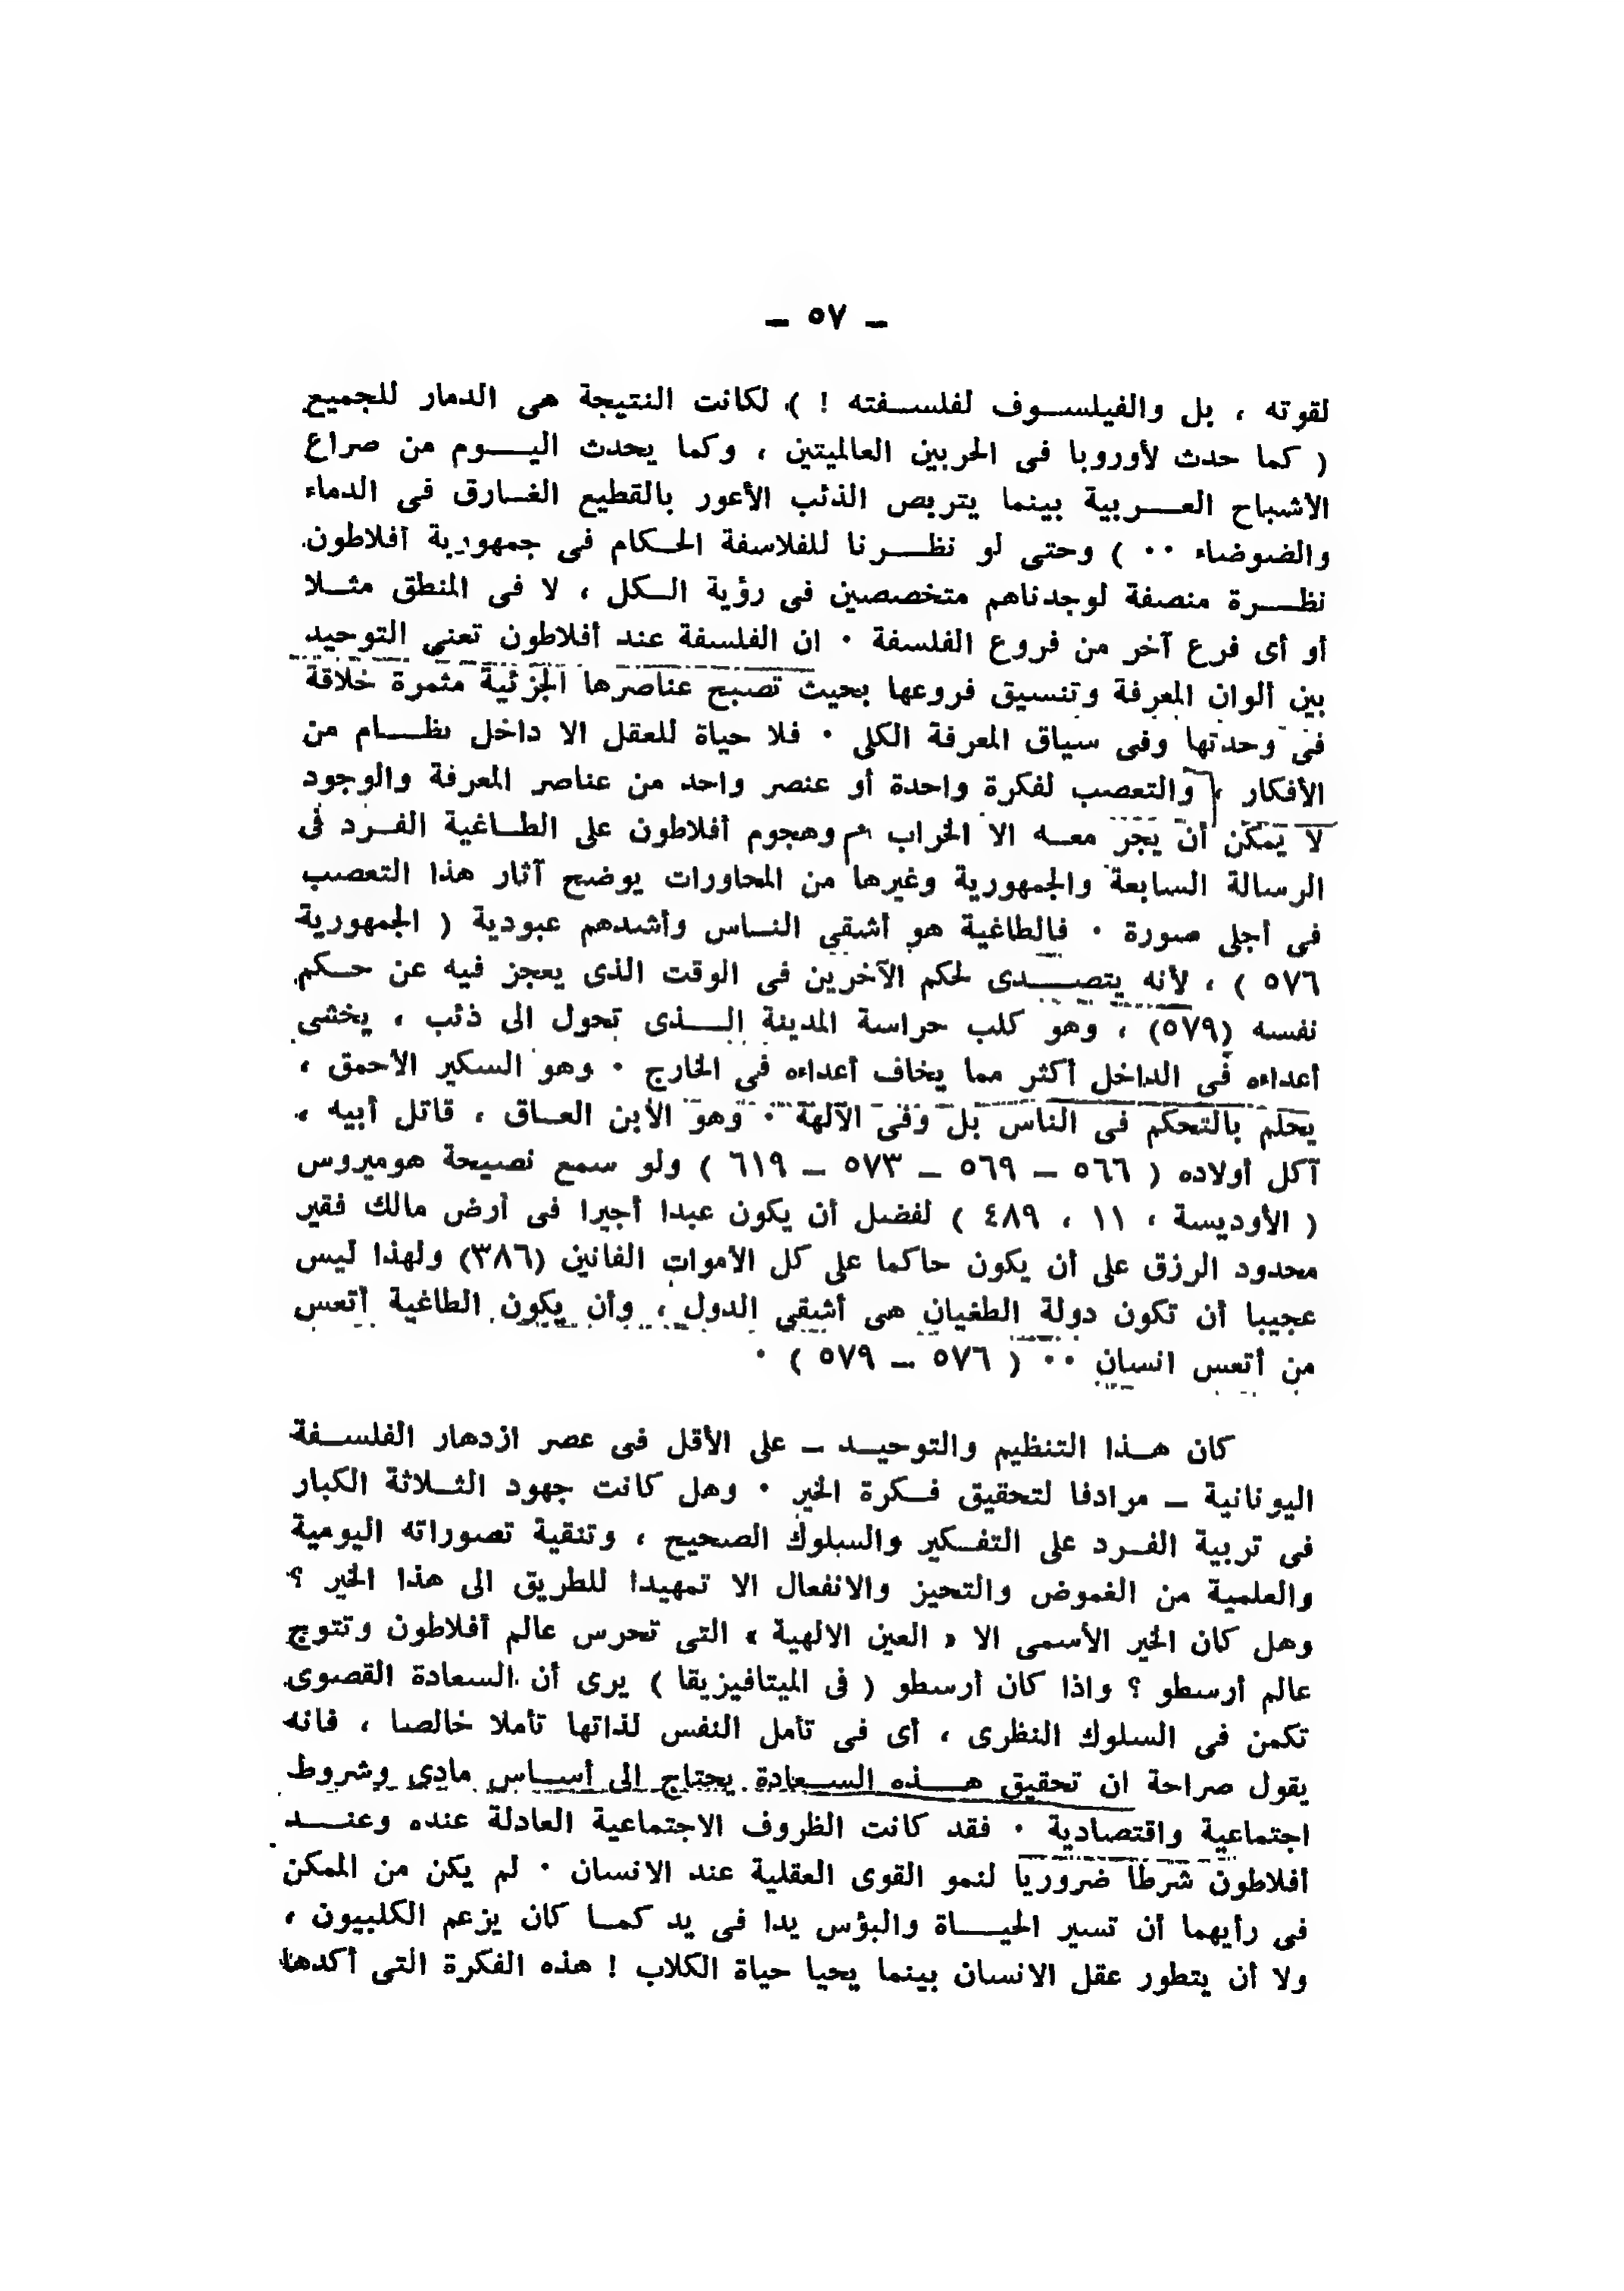 ـ ٥٧ ـ
لقوته ، بل والفيلسوف لفلسفته ! ) لكانت النتيجة هى الدمار للجميع
( كما حدث لأوروبا فى الحربين العالميتين ، وكما يحدث اليوم من صراع
الأشباح العربية بينما يتربص الذئب الأعور بالقطيع الغارق فى الدماء
والضوضاء ٠٠ ) وحتى لو نظرنا للفلاسفة الحكام فى جمهورية أفلاطون
نظرة منصفة لوجدناهم متخصصين فى رؤية الكل ، لا فى المنطق مثلا
أو أى فرع آخر من فروع الفلسفة ٠ ان الفلسفة عند أفلاطون تعنى التوحيد
بين ألوان المعرفة وتنسيق فروعها بحيث تصبح عناصرها الجزئية مثمرة خلاقة
فى وحدتها وفى سياق المعرفة الكلى ٠ فلا حياة للعقل الا داخل نظام من
الأفكار ، والتعصب لفكرة واحدة أو عنصر واحد من عناصر المعرفة والوجود
لا يمكن أن يجر معه الا الخراب وهجوم أفلاطون على الطاغية الفرد فى
الرسالة السابعة والجمهورية وغيرها من المحاورات يوضح آثار هذا التعصب
فى أجلى صورة ٠ فالطاغية هو أشقى الناس وأشدهم عبودية ( الجمهورية
٥٧٦ ) ، لأنه يتصدى لحكم الآخرين فى الوقت الذى يعجز فيه عن حكم
نفسه (٥٧٩) ، وهو كلب حراسة المدينة الذى تحول الى ذئب ، يخشى
أعداءه فى الداخل أكثر مما يخاف أعداءه فى الخارج ٠ وهو السكير الأحمق ،
يحلم بالتحكم فى الناس بل وفى الآلهة ٠ وهو الأبن العاق ، قاتل أبيه ،
آكل أولاده ( ٥٦٦ ـ ٥٦٩ ـ ٥٧٣ ـ ٦١٩ ) ولو سمع نصيحة هوميروس
( الأوديسة ، ١١ ، ٤٨٩ ) لفضل أن يكون عبدا أجيرا فى أرض مالك فقير
محدود الرزق على أن يكون حاكما على كل الأموات الفانين (٣٨٦) ولهذا ليس
عجيبا أن تكون دولة الطغيان هى أشقى الدول ، وأن يكون الطاغية أتعس
من أتعس انسان ٠٠ ( ٥٧٦ ـ ٥٧٩ ) ٠
كان هذا التنظيم والتوحيد ـ على الأقل فى عصر ازدهار الفلسفة
اليونانية ـ مرادفا لتحقيق فكرة الخير ٠ وهل كانت جهود الثلاثة الكبار
فى تربية الفرد على التفكير والسلوك الصحيح ، وتنقية تصوراته اليومية
والعلمية من الغموض والتحيز والانفعال الا تمهيدا للطريق الى هذا الخير ؟
وهل كان الخير الأسمى الا « العين الالهية » التى تحرس عالم أفلاطون وتتوج
عالم أرسطو ؟ واذا كان أرسطو ( فى الميتافيزيقا ) يرى أن السعادة القصوى
تكمن فى السلوك النظرى ، أى فى تأمل النفس لذاتها تأملا خالصا ، فانه
يقول صراحة ان تحقيق هذه السعادة يحتاج الى أساس مادى وشروط
اجتماعية واقتصادية ٠ فقد كانت الظروف الاجتماعية العادلة عنده وعند
أفلاطون شرطا ضروريا لنمو القوى العقلية عند الانسان ٠ لم يكن من الممكن
فى رأيهما أن تسير الحياة والبؤس يدا فى يد كما كان يزعم الكلبيون ،
ولا أن يتطور عقل الانسان بينما يحيا حياة الكلاب ! هذه الفكرة التى أكدها